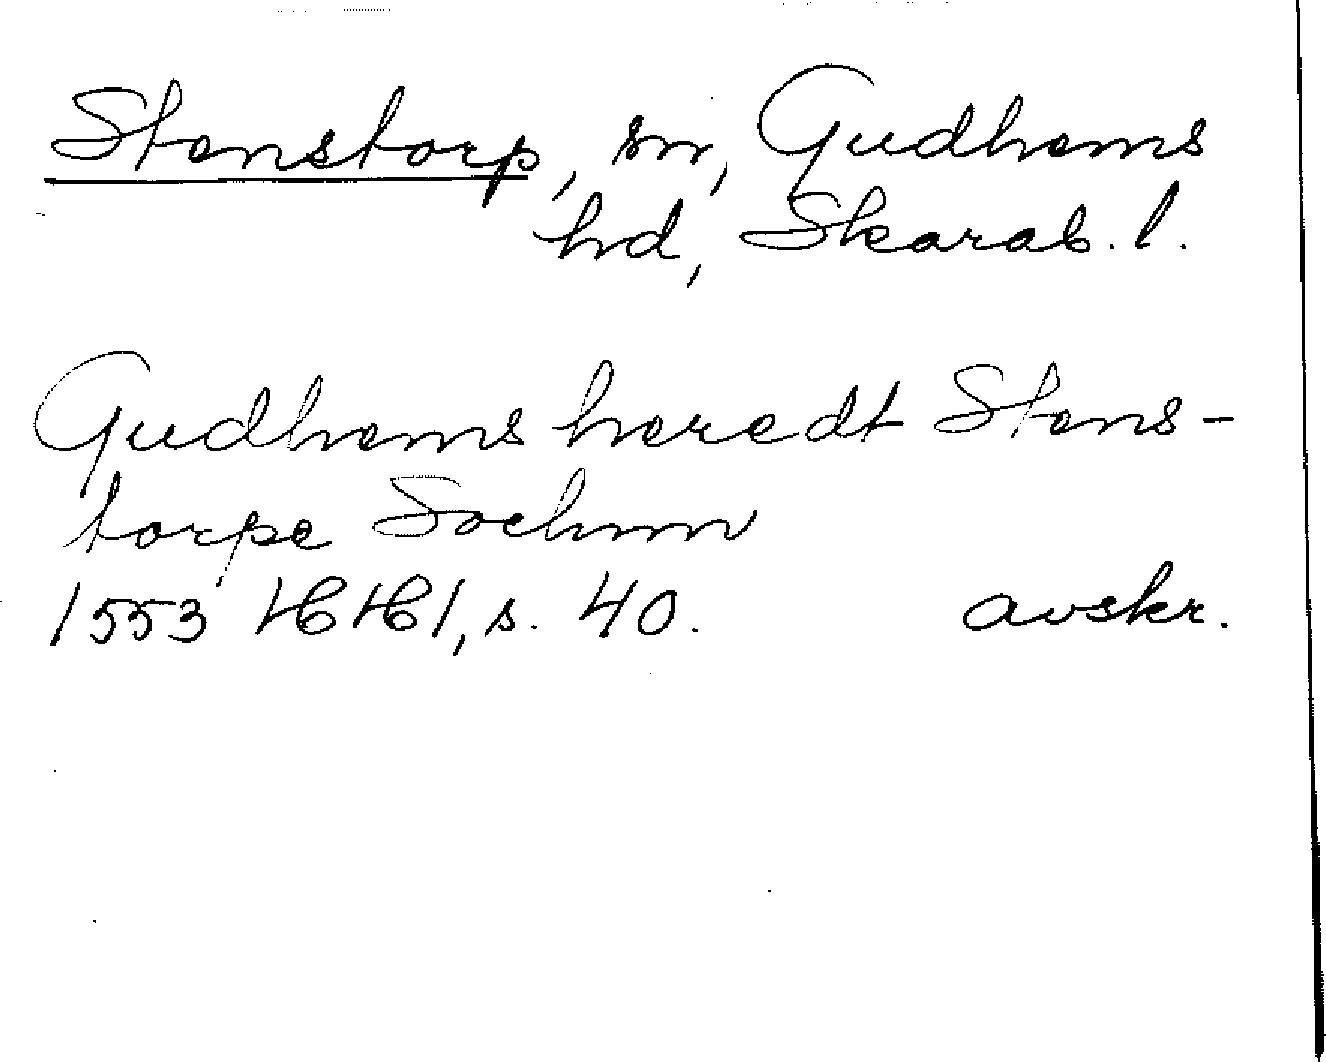 Stenstorp, sn, Gudhems
hd, Skarab. l.
Gudhems heredt Stens-
torpe Sochnn
1553 HH 1, s. 40. avskr.